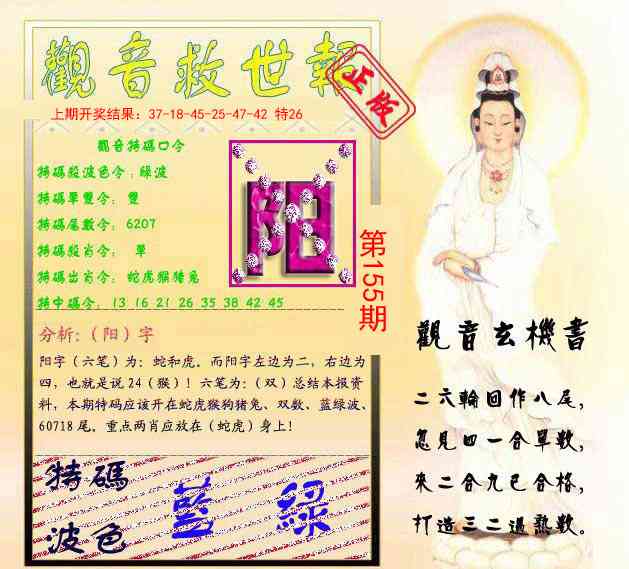 觀音救世報
正版
上期开奖结果：37-18-45-25-47-42 特26
觀音特碼口令
特碼殺波色令：綠波
特碼單雙令：雙
特碼尾數令：6207
特碼殺肖令： 單
特碼出肖令：蛇虎猴猪兔
特中碼令：13 16 21 26 35 38 42 45
阳
第155期
分析:（阳）字
阳字（六笔）为：蛇和虎。而阳字左边为二，右边为
四，也就是说24（猴）！六笔为：（双）总结本报资
料，本期特码应该开在蛇虎猴狗猪兔、双数、蓝绿波、
60718尾。重点两肖应放在（蛇虎）身上！
特碼
波色
藍 綠
觀音玄機書
二六輪回作八尾，
忽見四一合單數，
來二合九已合格，
打造三二過熟數。